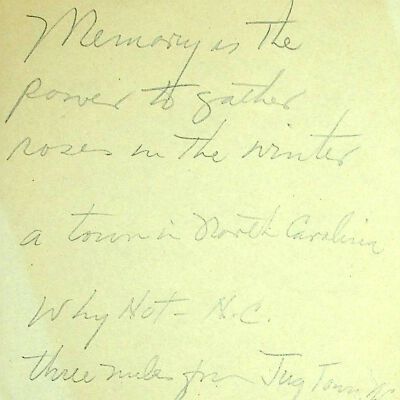 Memory is the
power to gather
roses in the winter
a town in North Carolina
Why Not - N.C.
three miles from Jug Town NC